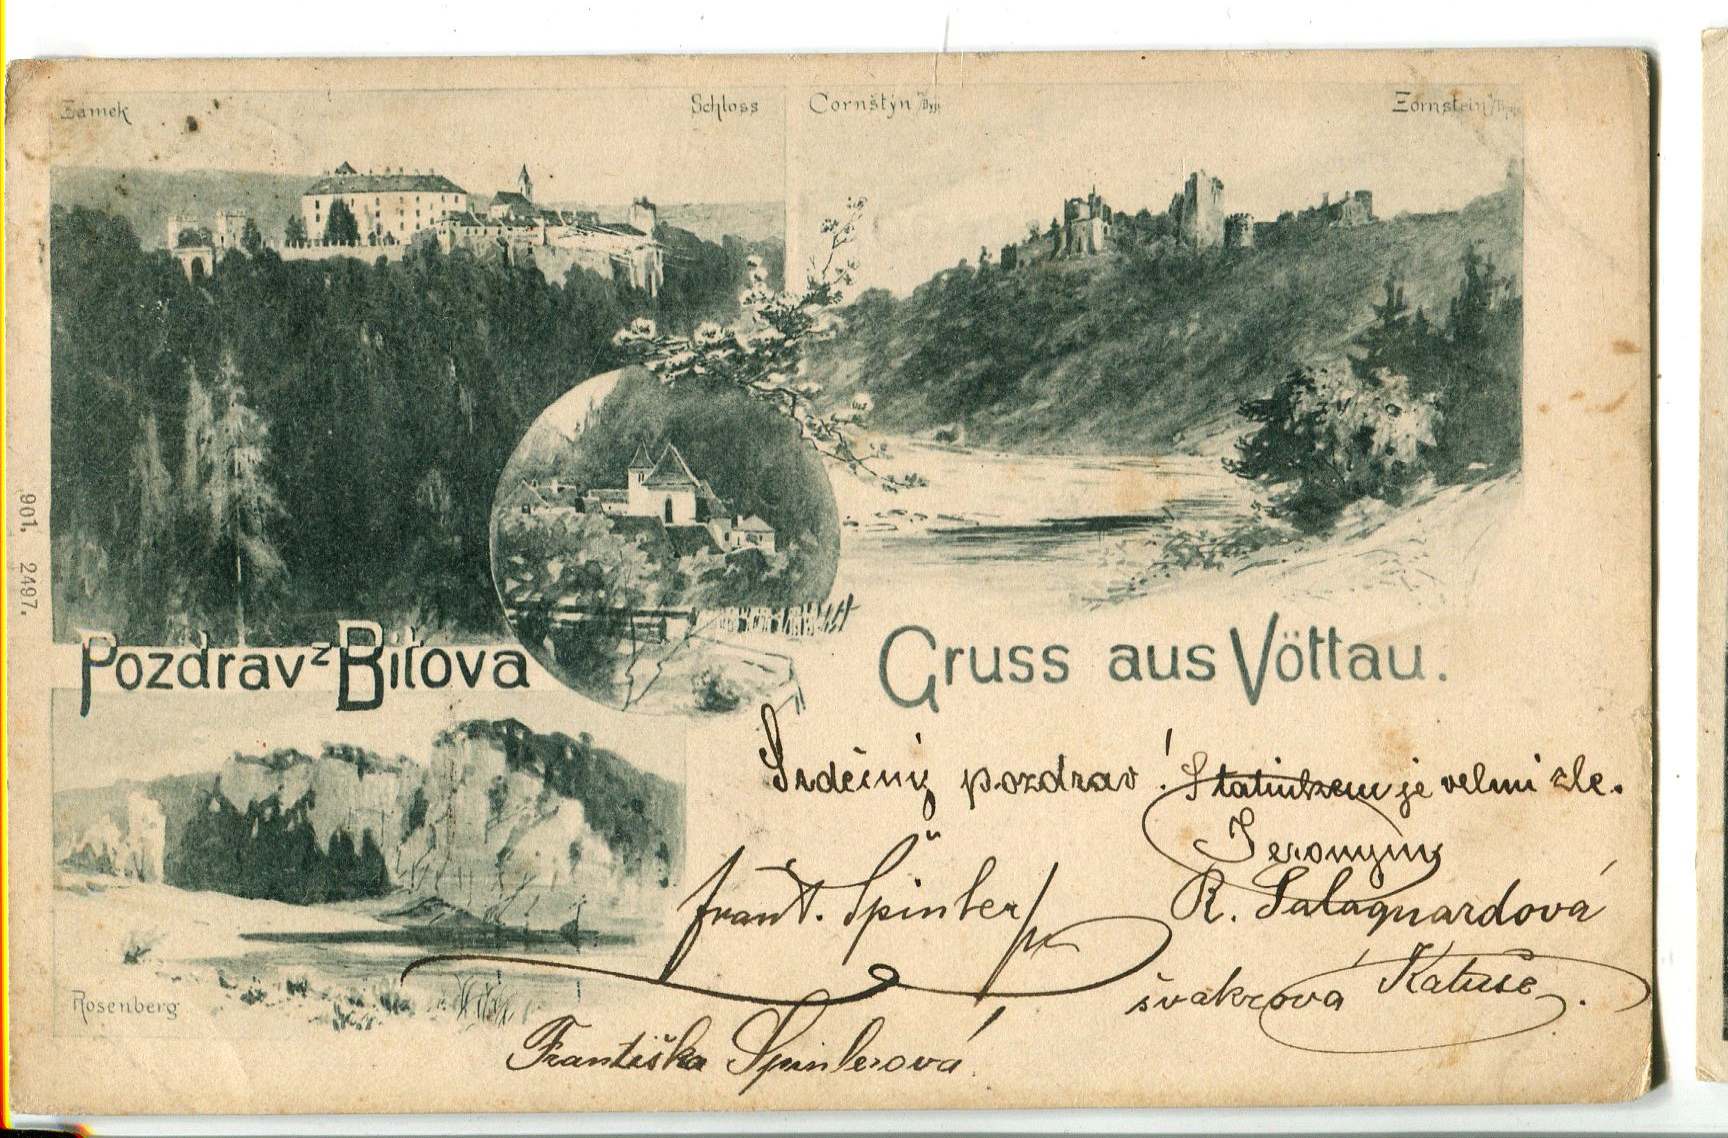 Zámek
Schloss
Cornštýn
Zornstein
901. 2497.
Pozdrav z Bítova
Gruss aus Vöttau.
Srdečný pozdrav! Statinkem je velmi zle.
Jeronym
Frant. Špinler
R. Salaquardová
švakrová Katuše.
Rosenberg
Františka Špinlerová